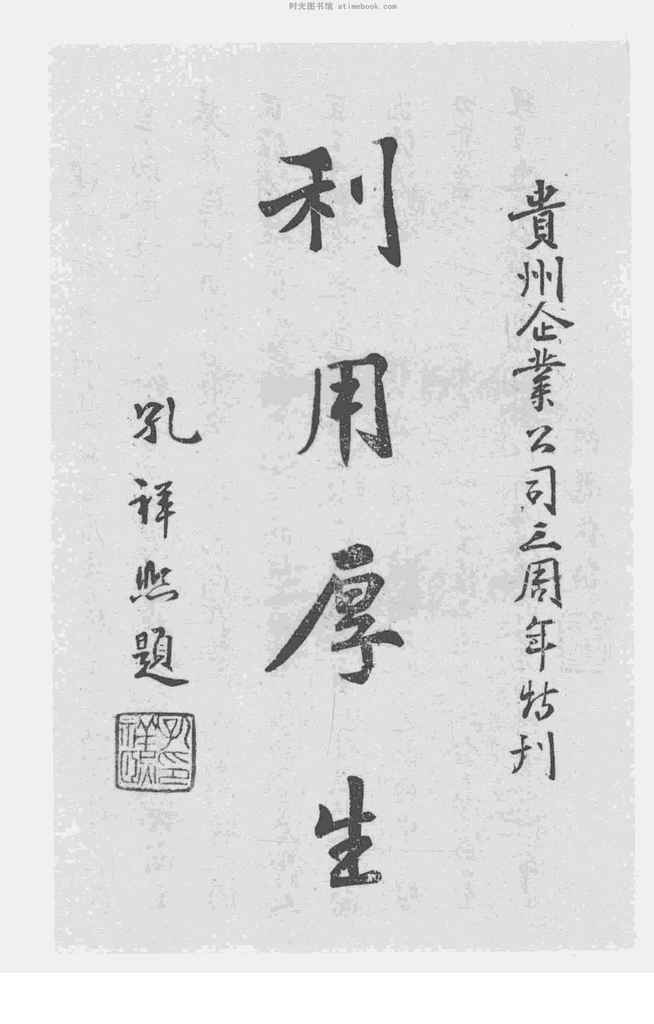 时光图书馆 atimebook.com
貴州企業公司三周年特刊
利用厚生
孔祥熙題